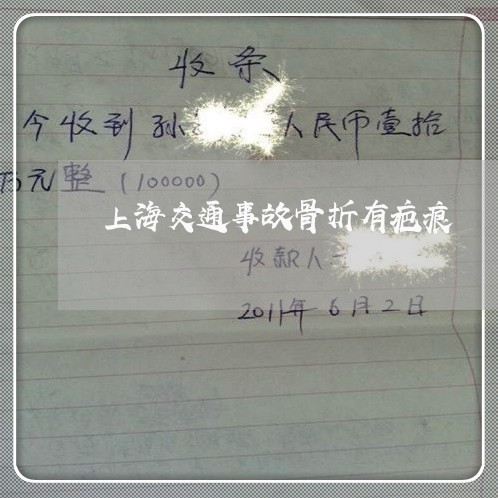 收条
今收到孙 人民币壹拾
万元整(100000)
上海交通事故骨折有疤痕
收款人
2011年6月2日